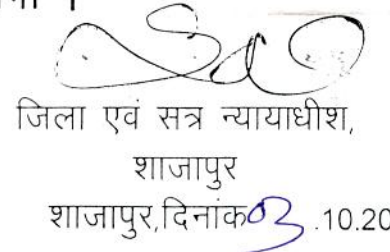 जिला एवं सत्र न्यायाधीश,
शाजापुर
शाजापुर,दिनांक 03 .10.20